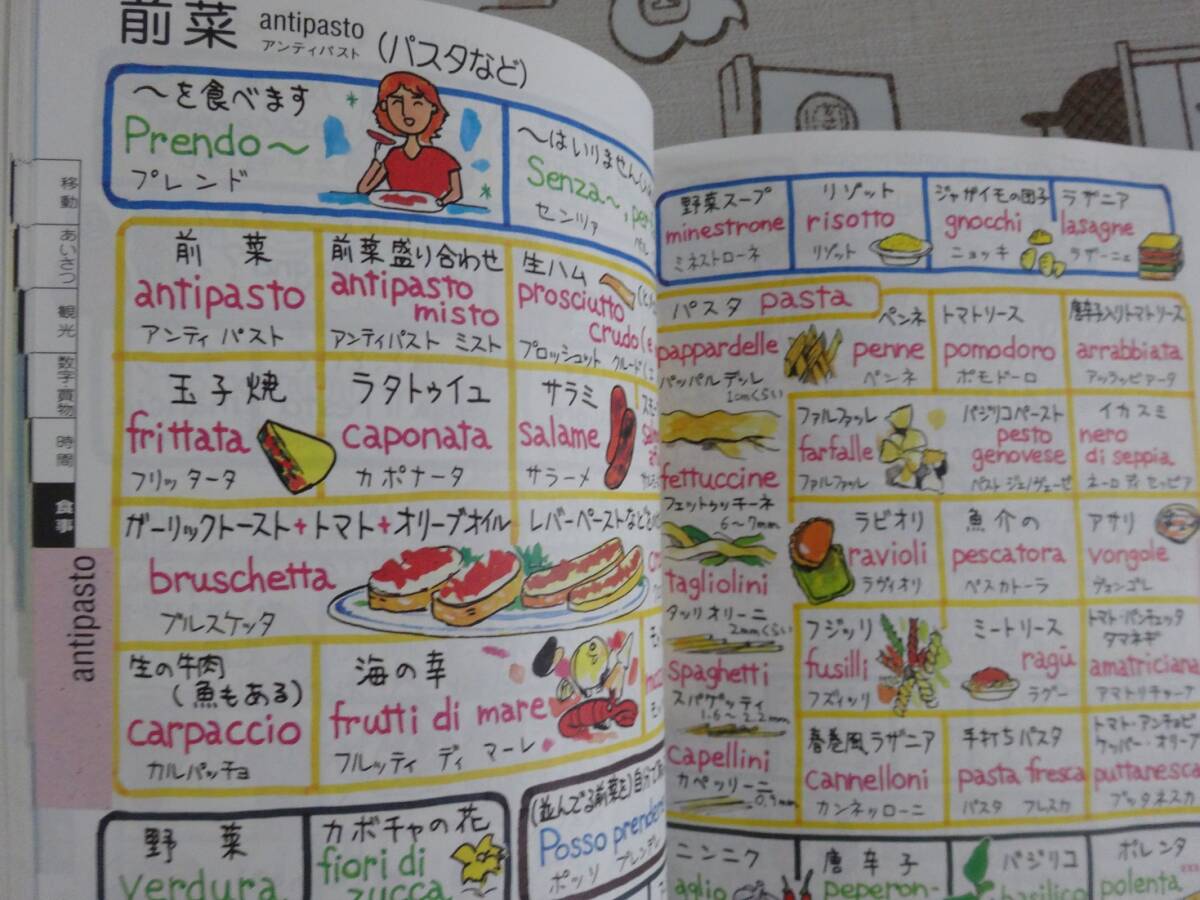 前菜 antipasto
アンティパスト
(パスタなど)
〜を食べます
Prendo〜
プレンド
〜はいりません
Senza〜,
センツァ
前菜
antipasto
アンティ パスト
前菜盛り合わせ
antipasto
misto
アンティパスト ミスト
生ハム
prosciutto
crudo
プロッシュット クルード
玉子焼
frittata
フリッタータ
ラタトゥイユ
caponata
カポナータ
サラミ
salame
サラーメ
ガーリックトースト+トマト+オリーブオイル
bruschetta
ブルスケッタ
レバーペーストなど
生の牛肉
(魚もある)
carpaccio
カルパッチョ
海の幸
frutti di mare
フルッティ ディ マーレ
野菜
verdura
カボチャの花
fiori di
zucca
(並んでる前菜を)自分で
Posso prender
ポッソ プレンデレ
移動
あいさつ
観光
数字買物
時間
食事
antipasto
野菜スープ
minestrone
ミネストローネ
リゾット
risotto
リゾット
ジャガイモの団子
gnocchi
ニョッキ
ラザニア
lasagne
ラザーニェ
パスタ pasta
pappardelle
パッパルデッレ
1cmくらい
fettuccine
フェットゥッチーネ
6〜7mm
tagliolini
タッリオリーニ
2mmくらい
spaghetti
スパゲッティ
1.6〜2.2mm
capellini
カペッリーニ
0.9mm
ペンネ
penne
ペンネ
トマトソース
pomodoro
ポモドーロ
唐辛子入りトマトソース
arrabbiata
アッラッビアータ
ファルファッレ
farfalle
ファルファッレ
バジリコペースト
pesto
genovese
ペスト ジェノヴェーゼ
イカスミ
nero
di seppia
ネーロ ディ セッピア
ラビオリ
ravioli
ラヴィオリ
魚介の
pescatora
ペスカトーラ
アサリ
vongole
ヴォンゴレ
フジッリ
fusilli
フズィッリ
ミートソース
ragù
ラグー
トマト・パンチェッタ
タマネギ
amatriciana
アマトリチャーナ
春巻風ラザニア
cannelloni
カンネッローニ
手打ちパスタ
pasta fresca
パスタ フレスカ
トマト・アンチョビ
ケッパー・オリーブ
puttanesca
プッタネスカ
ニンニク
aglio
唐辛子
peperon-
バジリコ
basilico
ポレンタ
polenta